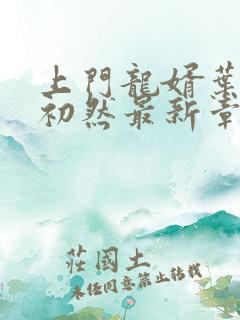 上門龍婿葉
初然最新章
莊國土
未任同意禁止轉載